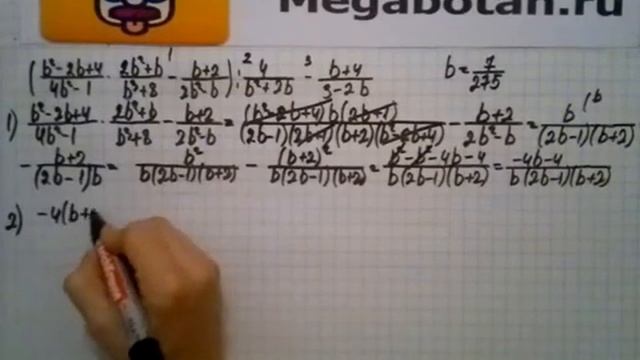 Megabotan.ru
(b²-2b+4/4b²-1 · 2b²+b/b³+8 - b+2/2b²-b) : 4/b²+2b - b+4/3-2b b = 7/275
1) b²-2b+4/4b²-1 · 2b²+b/b³+8 - b+2/2b²-b = (b²-2b+4)b(2b+1)/(2b-1)(2b+1)(b+2)(b²-2b+4) - b+2/2b²-b = b/(2b-1)(b+2)
- b+2/(2b-1)b = b²/b(2b-1)(b+2) - (b+2)²/b(2b-1)(b+2) = b²-b²-4b-4/b(2b-1)(b+2) = -4b-4/b(2b-1)(b+2)
2) -4(b+